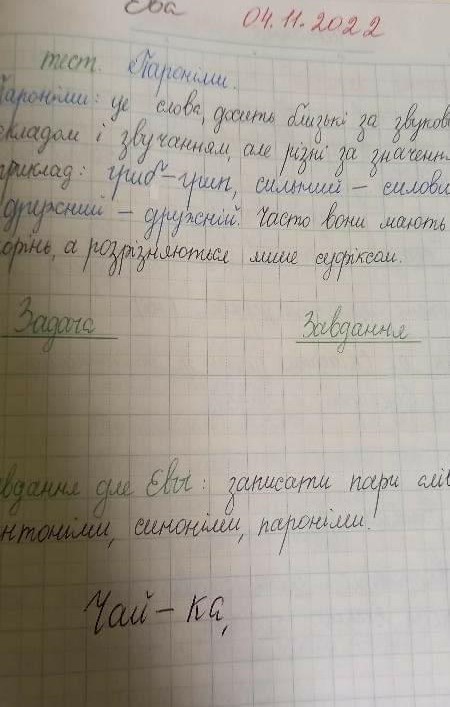 Ева
04.11.2022
тест. Пароніми.
Пароніми: це слова, досить близькі за звуков
складом і звучанням, але різні за значенн
приклад: гриб - грип, сильний - силови
дружний - дружній. Часто вони мають
корінь, а розрізняються лише суфіксом.
Задача Завдання
авдання для Євы: записати пари слів
антоніми, синоніми, пароніми.
Чай - ка,